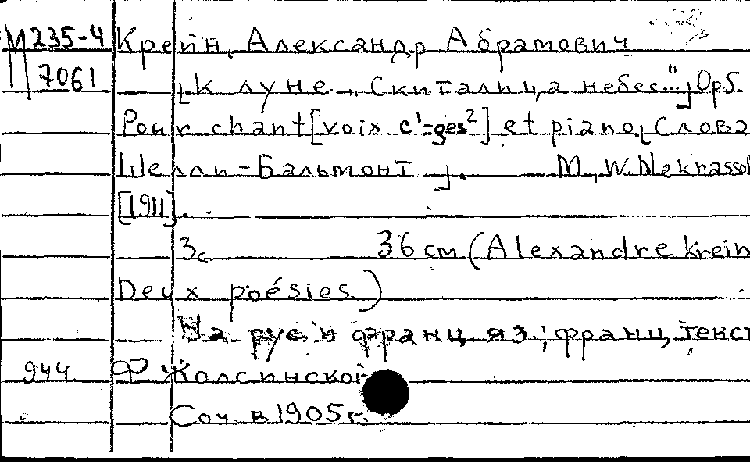 М 235-4 Крейн, Александр Абрамович
7061 „К луне „Скиталица небес..." Op5.
Pour chant [voix c¹-ges²] et piano, Слова
Шелли-Бальмонт. М., W. Nekrassoff
[1911].
3с 36 см (Alexandre Krein
Deux poésies)
На рус. и франц. яз.; франц. текст
944 Ф Жолсинской
Соч. в 1905 г.